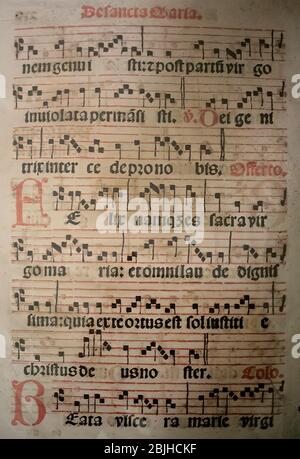 De sancta Maria.
nem genui sti: z post partū vir go
inuiolata permāsi sti. V. Dei ge ni
trix inter ce de pro no bis. Offerto.
F E lix nāmqz es sacra vir
go ma ria: et omni lau de dignis
sima: quia ex te ortus est sol iustiti e
christus de us no ster. Cōio.
B Eata visce ra marie virgi
alamy
Image ID: 2BJHCKF
www.alamy.com